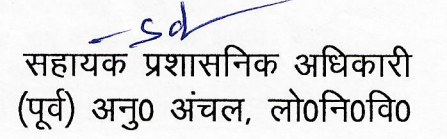 -sd
सहायक प्रशासनिक अधिकारी
(पूर्व) अनु0 अंचल, लो0नि0वि0